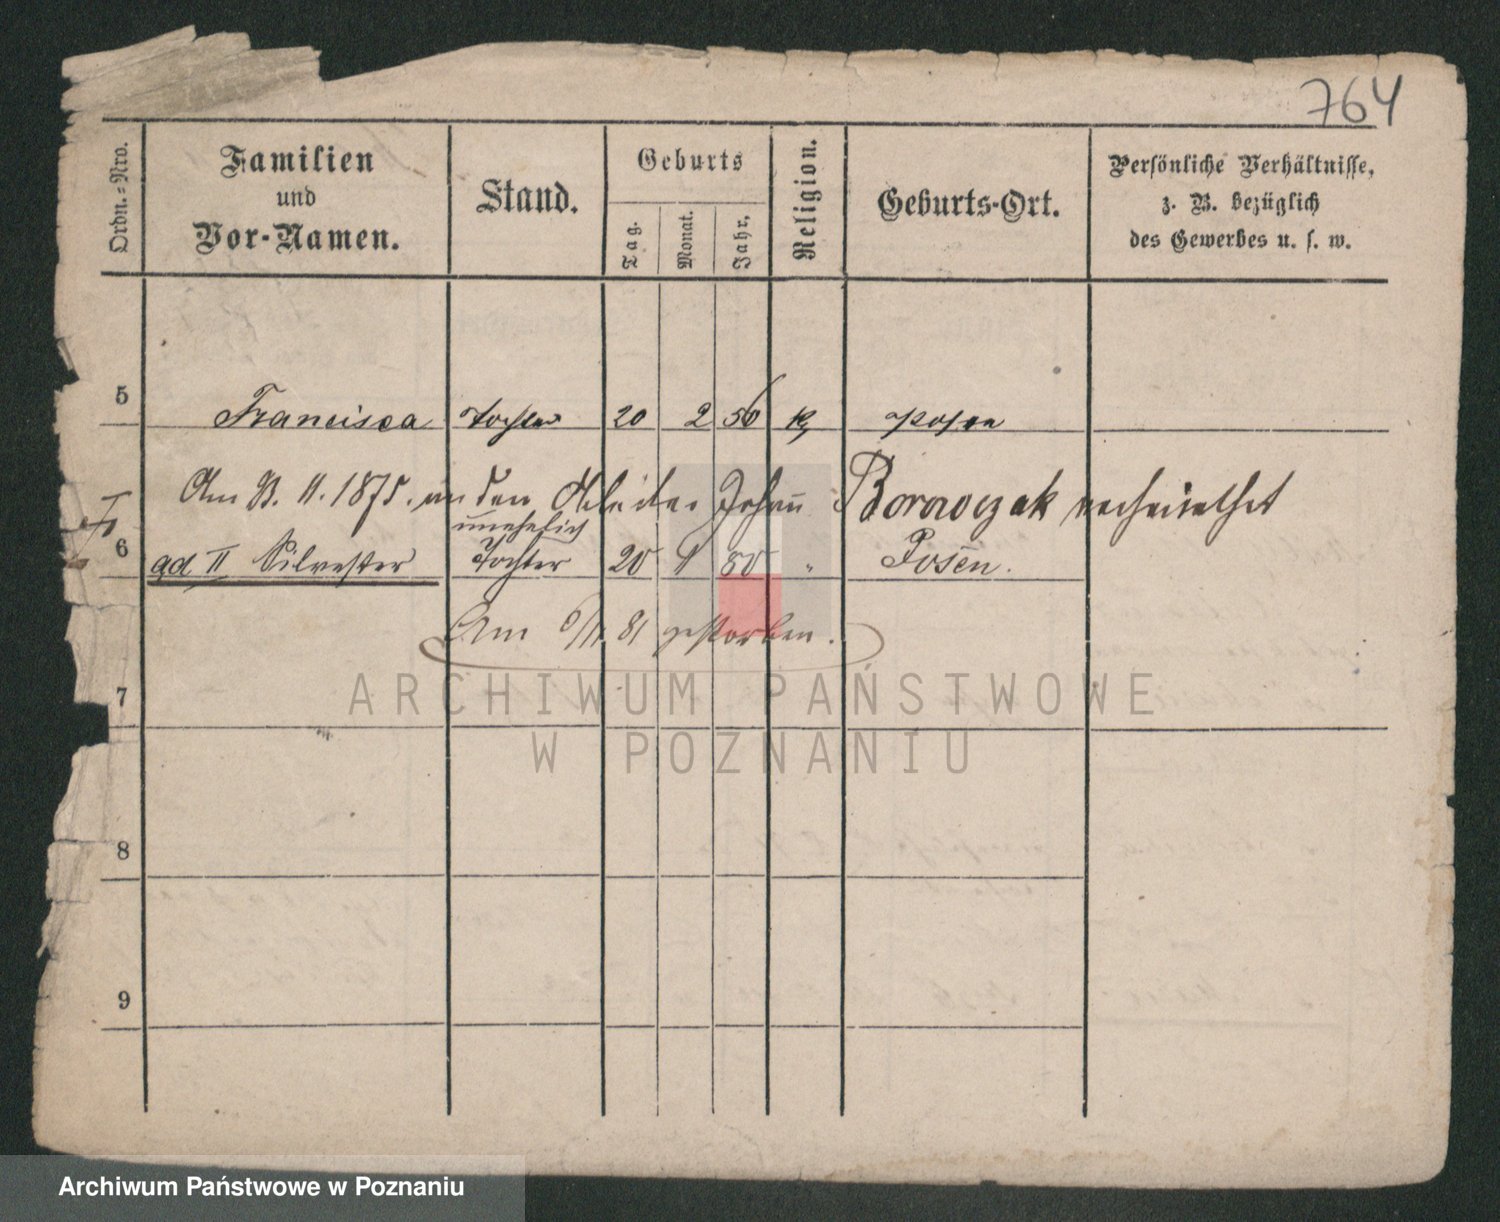 764
Ordn.-Nro.
Familien
und
Vor-Namen.
Stand.
Geburts
Tag.
Monat.
Jahr.
Religion.
Geburts-Ort.
Persönliche Verhältnisse,
z. B. bezüglich
des Gewerbes u. s. w.
5 Francisca Tochter 20 2 56 K Posen
Am 11. 1875. an den Johann Borowczak verheirathet
unehelich
6 ad II Silvester Tochter 20 80 " Posen.
Am 81 gestorben.
7
8
9
ARCHIWUM PAŃSTWOWE
W POZNANIU
Archiwum Państwowe w Poznaniu